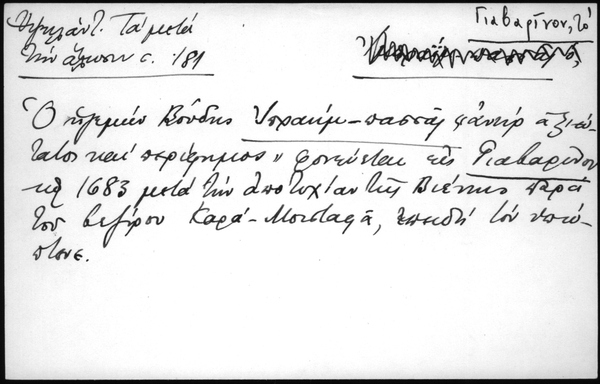 Υψηλάντ. Τα μετά
την άλωσιν σ. 181
Γιαβαρῖνον, τό
Ὁ ἡγεμὼν Βούδης Ἰμπραήμ-πασσᾶς "ἀνὴρ ἀξιώ-
τατος καὶ περίφημος" φονεύεται εἰς Γιαβαρῖνον
τῷ 1683 μετὰ τὴν ἀποτυχίαν τῆς Βιέννης παρὰ
τοῦ βεζίρου Καρά-Μουσταφᾶ, ἐπειδὴ τὸν ὑπώ-
πτευε.